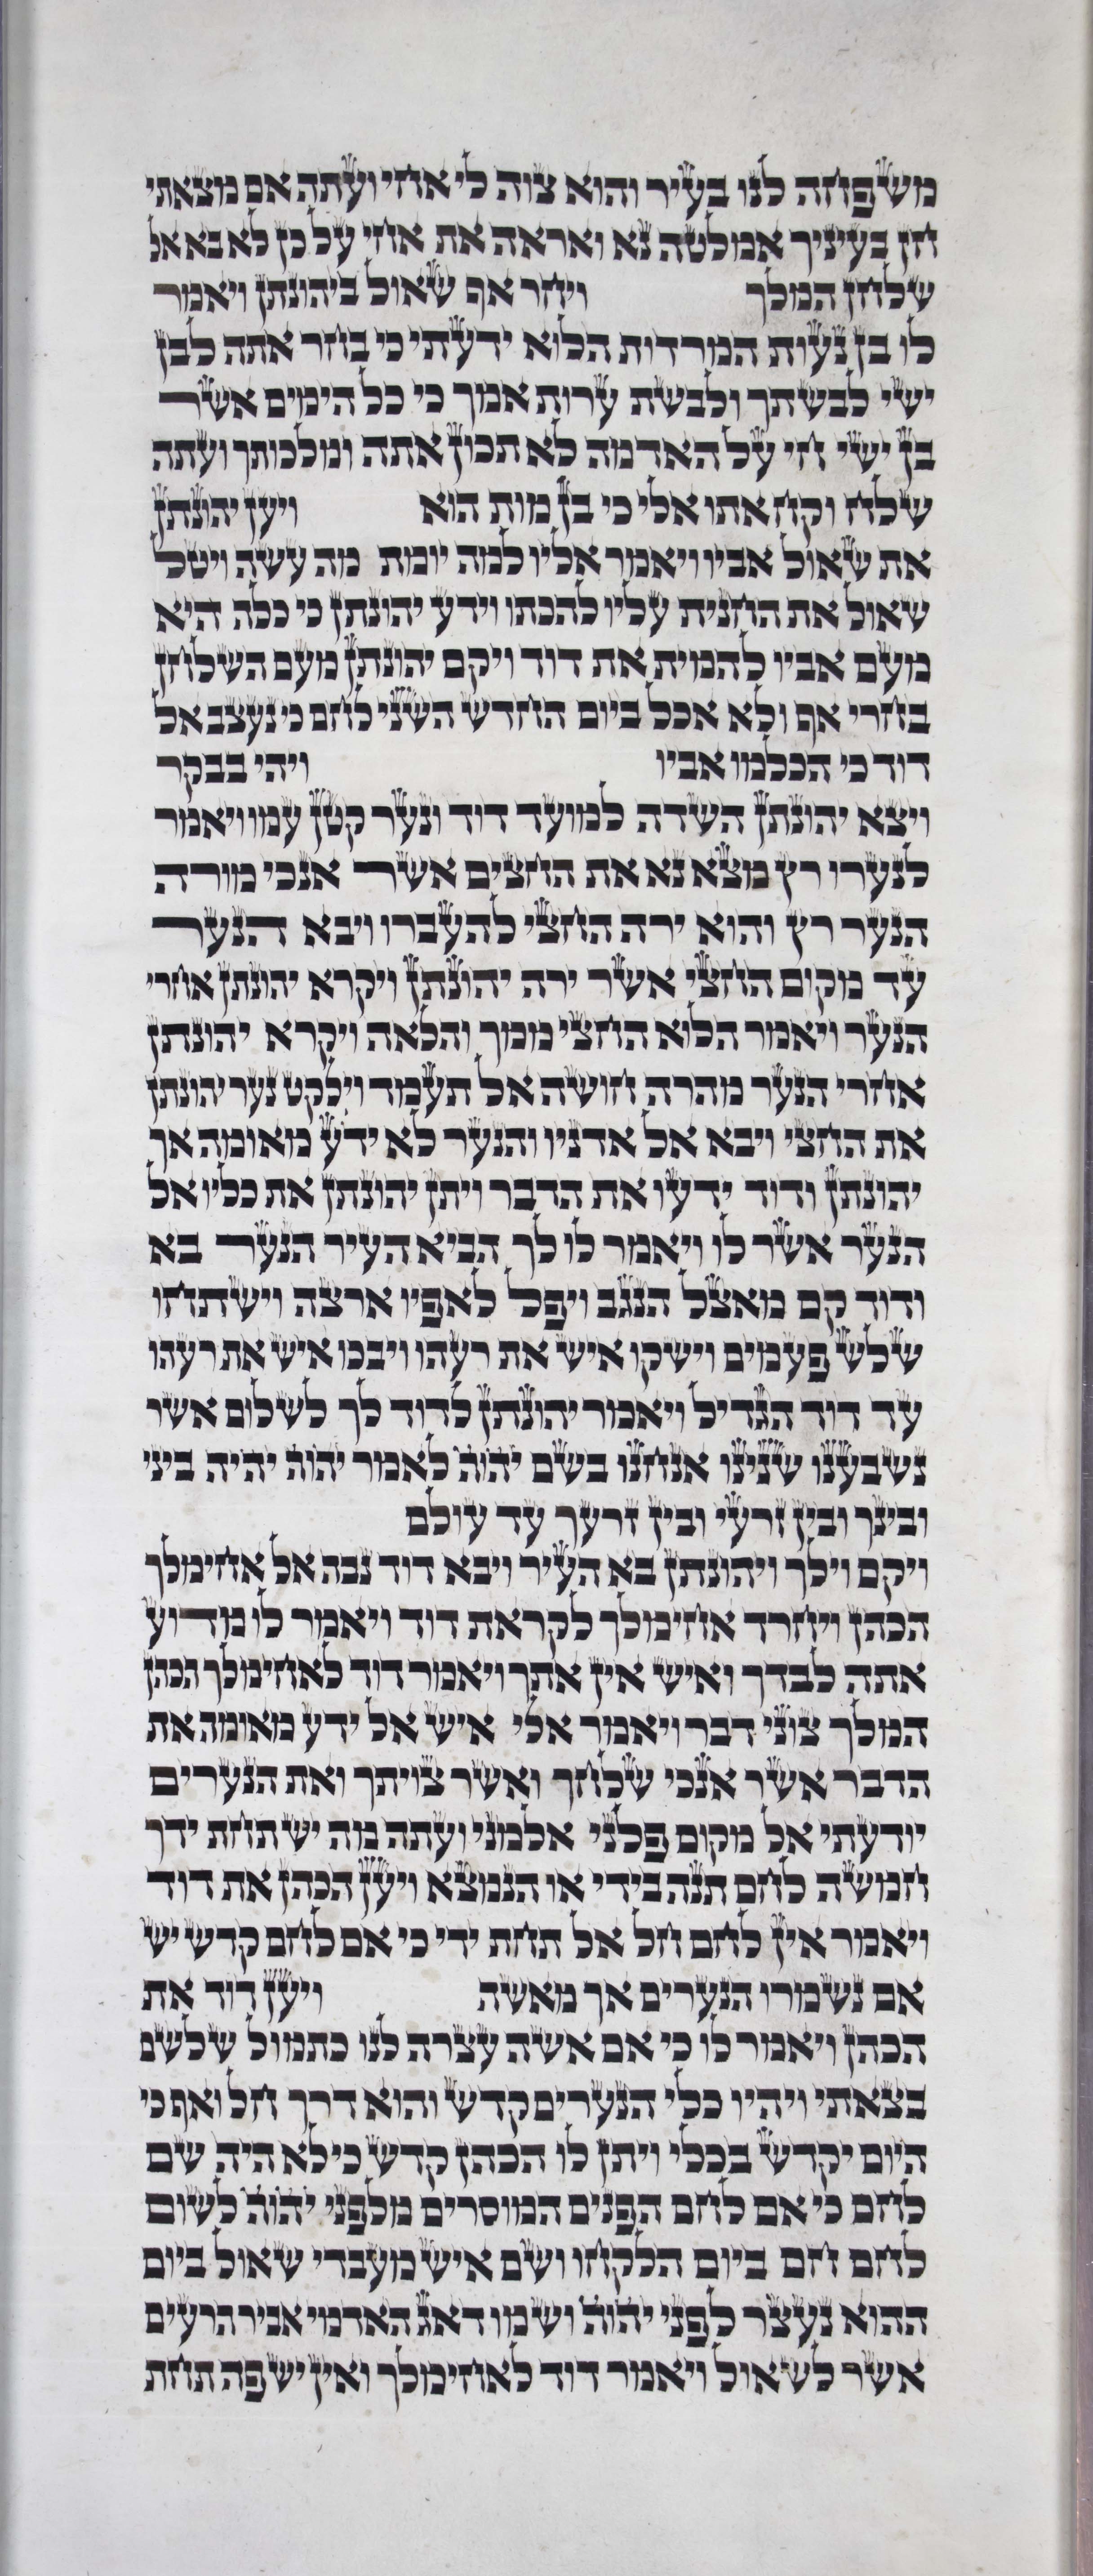 משפחה לנו בעיר והוא צוה לי אחי ועתה אם מצאתי
חן בעיניך אמלטה נא ואראה את אחי על כן לא בא אל
שלחן המלך ויחר אף שאול ביהונתן ויאמר
לו בן נעות המרדות הלוא ידעתי כי בחר אתה לבן
ישי לבשתך ולבשת ערות אמך כי כל הימים אשר
בן ישי חי על האדמה לא תכון אתה ומלכותך ועתה
שלח וקח אתו אלי כי בן מות הוא ויען יהונתן
את שאול אביו ויאמר אליו למה יומת מה עשה ויטל
שאול את החנית עליו להכתו וידע יהונתן כי כלה היא
מעם אביו להמית את דוד ויקם יהונתן מעם השלחן
בחרי אף ולא אכל ביום החדש השני לחם כי נעצב אל
דוד כי הכלמו אביו ויהי בבקר
ויצא יהונתן השדה למועד דוד ונער קטן עמו ויאמר
לנערו רץ מצא נא את החצים אשר אנכי מורה
הנער רץ והוא ירה החצי להעברו ויבא הנער
עד מקום החצי אשר ירה יהונתן ויקרא יהונתן אחרי
הנער ויאמר הלוא החצי ממך והלאה ויקרא יהונתן
אחרי הנער מהרה חושה אל תעמד וילקט נער יהונתן
את החצי ויבא אל אדניו והנער לא ידע מאומה אך
יהונתן ודוד ידעו את הדבר ויתן יהונתן את כליו אל
הנער אשר לו ויאמר לו לך הביא העיר הנער בא
ודוד קם מאצל הנגב ויפל לאפיו ארצה וישתחו
שלש פעמים וישקו איש את רעהו ויבכו איש את רעהו
עד דוד הגדיל ויאמר יהונתן לדוד לך לשלום אשר
נשבענו שנינו אנחנו בשם יהוה לאמר יהוה יהיה ביני
ובינך ובין זרעי ובין זרעך עד עולם
ויקם וילך ויהונתן בא העיר ויבא דוד נבה אל אחימלך
הכהן ויחרד אחימלך לקראת דוד ויאמר לו מדוע
אתה לבדך ואיש אין אתך ויאמר דוד לאחימלך הכהן
המלך צוני דבר ויאמר אלי איש אל ידע מאומה את
הדבר אשר אנכי שלחך ואשר צויתך ואת הנערים
יודעתי אל מקום פלני אלמני ועתה מה יש תחת ידך
חמשה לחם תנה בידי או הנמצא ויען הכהן את דוד
ויאמר אין לחם חל אל תחת ידי כי אם לחם קדש יש
אם נשמרו הנערים אך מאשה ויען דוד את
הכהן ויאמר לו כי אם אשה עצרה לנו כתמול שלשם
בצאתי ויהיו כלי הנערים קדש והוא דרך חל ואף כי
היום יקדש בכלי ויתן לו הכהן קדש כי לא היה שם
לחם כי אם לחם הפנים המוסרים מלפני יהוה לשום
לחם חם ביום הלקחו ושם איש מעבדי שאול ביום
ההוא נעצר לפני יהוה ושמו דאג האדמי אביר הרעים
אשר לשאול ויאמר דוד לאחימלך ואין יש פה תחת